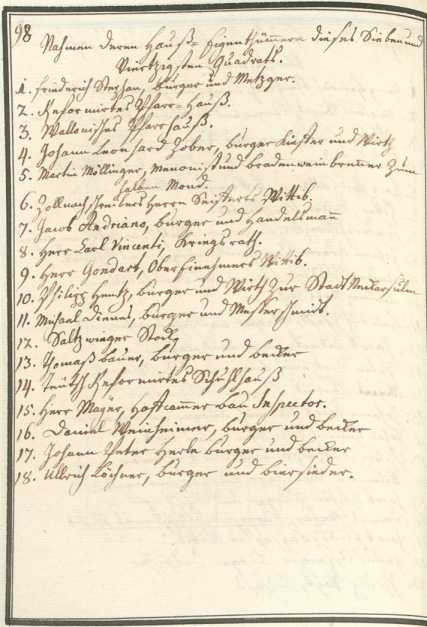 98
Nahmen deren Hauß-Eigenthümmern dieses Sieben und
Viertzigsten Quadrats.
1. Friederich Steyhan, burger und Metzger.
2. Reformirtes Pfarr-Hauß.
3. Wallonisches Pfarrhauß.
4. Johann Leonhard Zober, burger Küster und Wirth
5. Martin Möllinger, Menonist und brandenwein brenner Zum
halben Mond.
6. Zollnachschreibers Herrn Seifferts Wittib.
7. Jacob Andriano, burger und Handelsmann
8. Herr Carl Vincenti, Kriegsrath.
9. Herr Gondart, Obereinnehmers Wittib.
10. Philipp Hentz, burger und Wirth Zur Stadt Neckarsulm
11. Michael Diemes, burger und Messerschmidt.
12. Saltz wieger Stock
13. Thomaß bauer, burger und becker
14. Teutsch Reformirtes Schuhlhauß
15. Herr Mayer, Hoffcammer bau Inspector.
16. Daniel Weinheimer, burger und becker
17. Johann Peter Herle burger und becker
18. Ullrich Löchner, burger und biersieder.